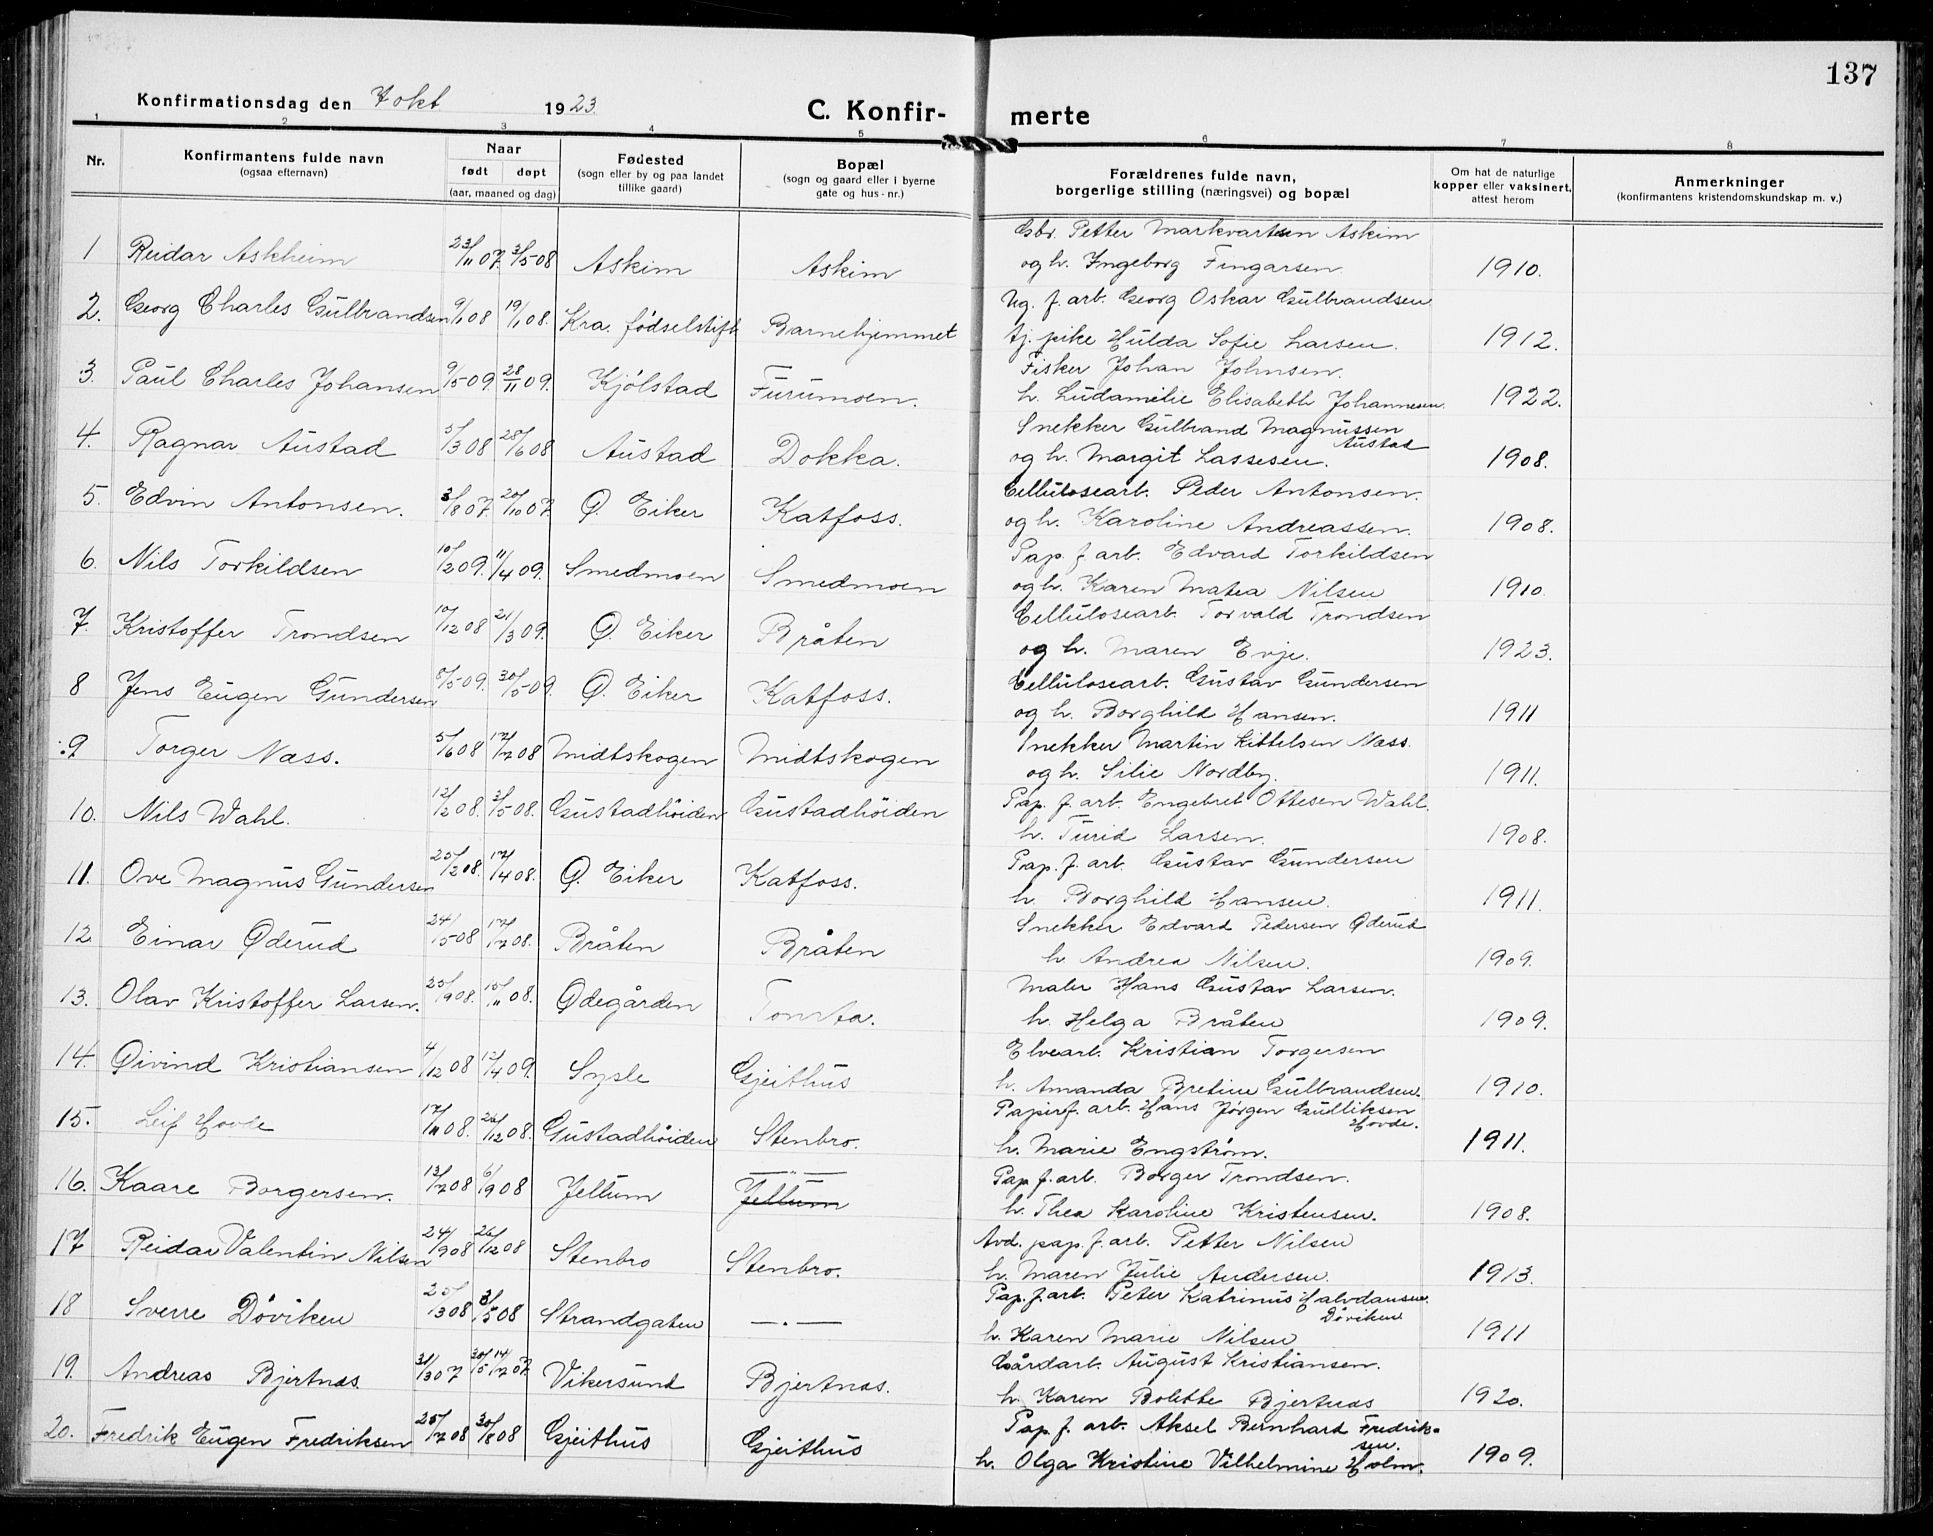 137
Konfirmationsdag den 7 okt 1923.
C. Konfir- merte
1 2 3 4 5 6 7 8
Nr.
Konfirmantens fulde navn
(ogsaa efternavn)
Naar
født døpt
(aar, maaned og dag)
Fødested
(sogn eller by og paa landet
tillike gaard)
Bopæl
(sogn og gaard eller i byerne
gate og hus-nr.)
Forældrenes fulde navn,
borgerlige stilling (næringsvei) og bopæl
Om hat de naturlige
kopper eller vaksinert,
attest herom
Anmerkninger
(konfirmantens kristendomskundskap m. v.)
Gbr. Petter Markvartsen Askim
1 Reidar Askheim 23/11 07. 3/5 08 Askim Askim og h. Ingeborg Fingarsen. 1910.
Ug. f. arb. Georg Oskar Gulbrandsen
2. Georg Charles Gulbrandsen 9/1 08 19/1 08. Kra. födselstift Barnehjemmet tj. pike Hulda Sofie Larsen. 1912.
Fisker Johan Johnsen.
3. Paul Charles Johansen 9/5 09. 28/11 09. Kjölstad Furumoen. h. Ludamilie Elisabeth Johannesen. 1922.
Snekker Gulbrand Magnussen
Austad
4. Ragnar Austad 5/3 08 28/6 08 Austad Dokka. og h. Margit Lassesen. 1908.
Cellulosearb. Peder Antonsen.
5. Edvin Antonsen. 3/8 07. 20/10 07. Ø. Eiker Katfoss. og h. Karoline Andreassen. 1908.
Pap. f. arb. Edvard Torkildsen
6. Nils Torkildsen 10/2 09. 11/4 09. Smedmoen Smedmoen og h. Karen Matea Nilsen 1910.
Cellulosearb. Torvald Trondsen
7. Kristoffer Trondsen 10/12 08 21/3 09. Ø. Eiker Bråten og h. Maren Evje. 1923.
Cellulosearb. Gustav Gundersen
8 Jens Eugen Gundersen 8/5 09. 30/5 09. Ø. Eiker Katfoss. og h. Borghild Hansen. 1911
Snekker Martin Kittelsen Næss.
9 Torger Næss. 5/6 08 12/7 08 Midtskogen Midtskogen og h. Silie Nordby. 1911.
Pap. f. arb. Engebret Ottesen Wahl.
10. Nils Wahl. 12/2 08. 3/5 08. Gustadhöiden Gustadhöiden h. Turid Larsen. 1908.
Pap. f. arb. Gustav Gundersen
11. Ove Magnus Gundersen 25/2 08. 17/4 08. Ø. Eiker Katfoss. h. Borghild Hansen. 1911.
Snekker Edvard Pedersen Øderud
12 Einar Øderud 24/5 08 12/7 08. Bråten Bråten h. Andrea Nilsen. 1909.
Maler Hans Gustav Larsen.
13. Olav Kristoffer Larsen. 25/9 08. 15/11 08. Ødegården Tomta. h. Helga Bråten 1909.
Elvearb. Kristian Torgersen
14. Øivind Kristiansen 4/12 08 12/4 09. Sysle Gjeithus h. Amanda Bretine Gulbrandsen. 1910.
Papirf. arb. Hans Jørgen Gudliksen
Hovde.
15. Leif Hovde 17/11 08. 26/12 08. Gustadhöiden Stenbro. h. Marie Engström. 1911.
Pap. f. arb. Borger Trondsen.
16. Kaare Borgersen. 13/7 08 6/9 08 Jellum — " — Jellum h. Thea Karoline Kristensen. 1908.
Avd. pap. f. arb. Petter Nilsen
17 Reidar Valentin Nilsen 24/9 08 26/12 08 Stenbro Stenbro. h. Maren Julie Andersen. 1913.
Pap. f. arb. Peter Katrinus Halvdansen.
Döviken
18 Sverre Döviken 25/3 08 3/5 08 Strandgaten — . — h. Karen Marie Nilsen 1911
Gårdarb. August Kristiansen.
19. Andreas Bjertnæs. 31/3 07 30/5 14/7 07. Vikersund Bjertnæs. h. Karen Bolette Bjertnæs 1920.
Pap. f. arb. Aksel Bernhard Fredrik-
sen.
20. Fredrik Eugen Fredriksen 25/7 08 30/8 08 Gjeithus Gjeithus h. Olga Kristine Vilhelmine Holm. 1909.